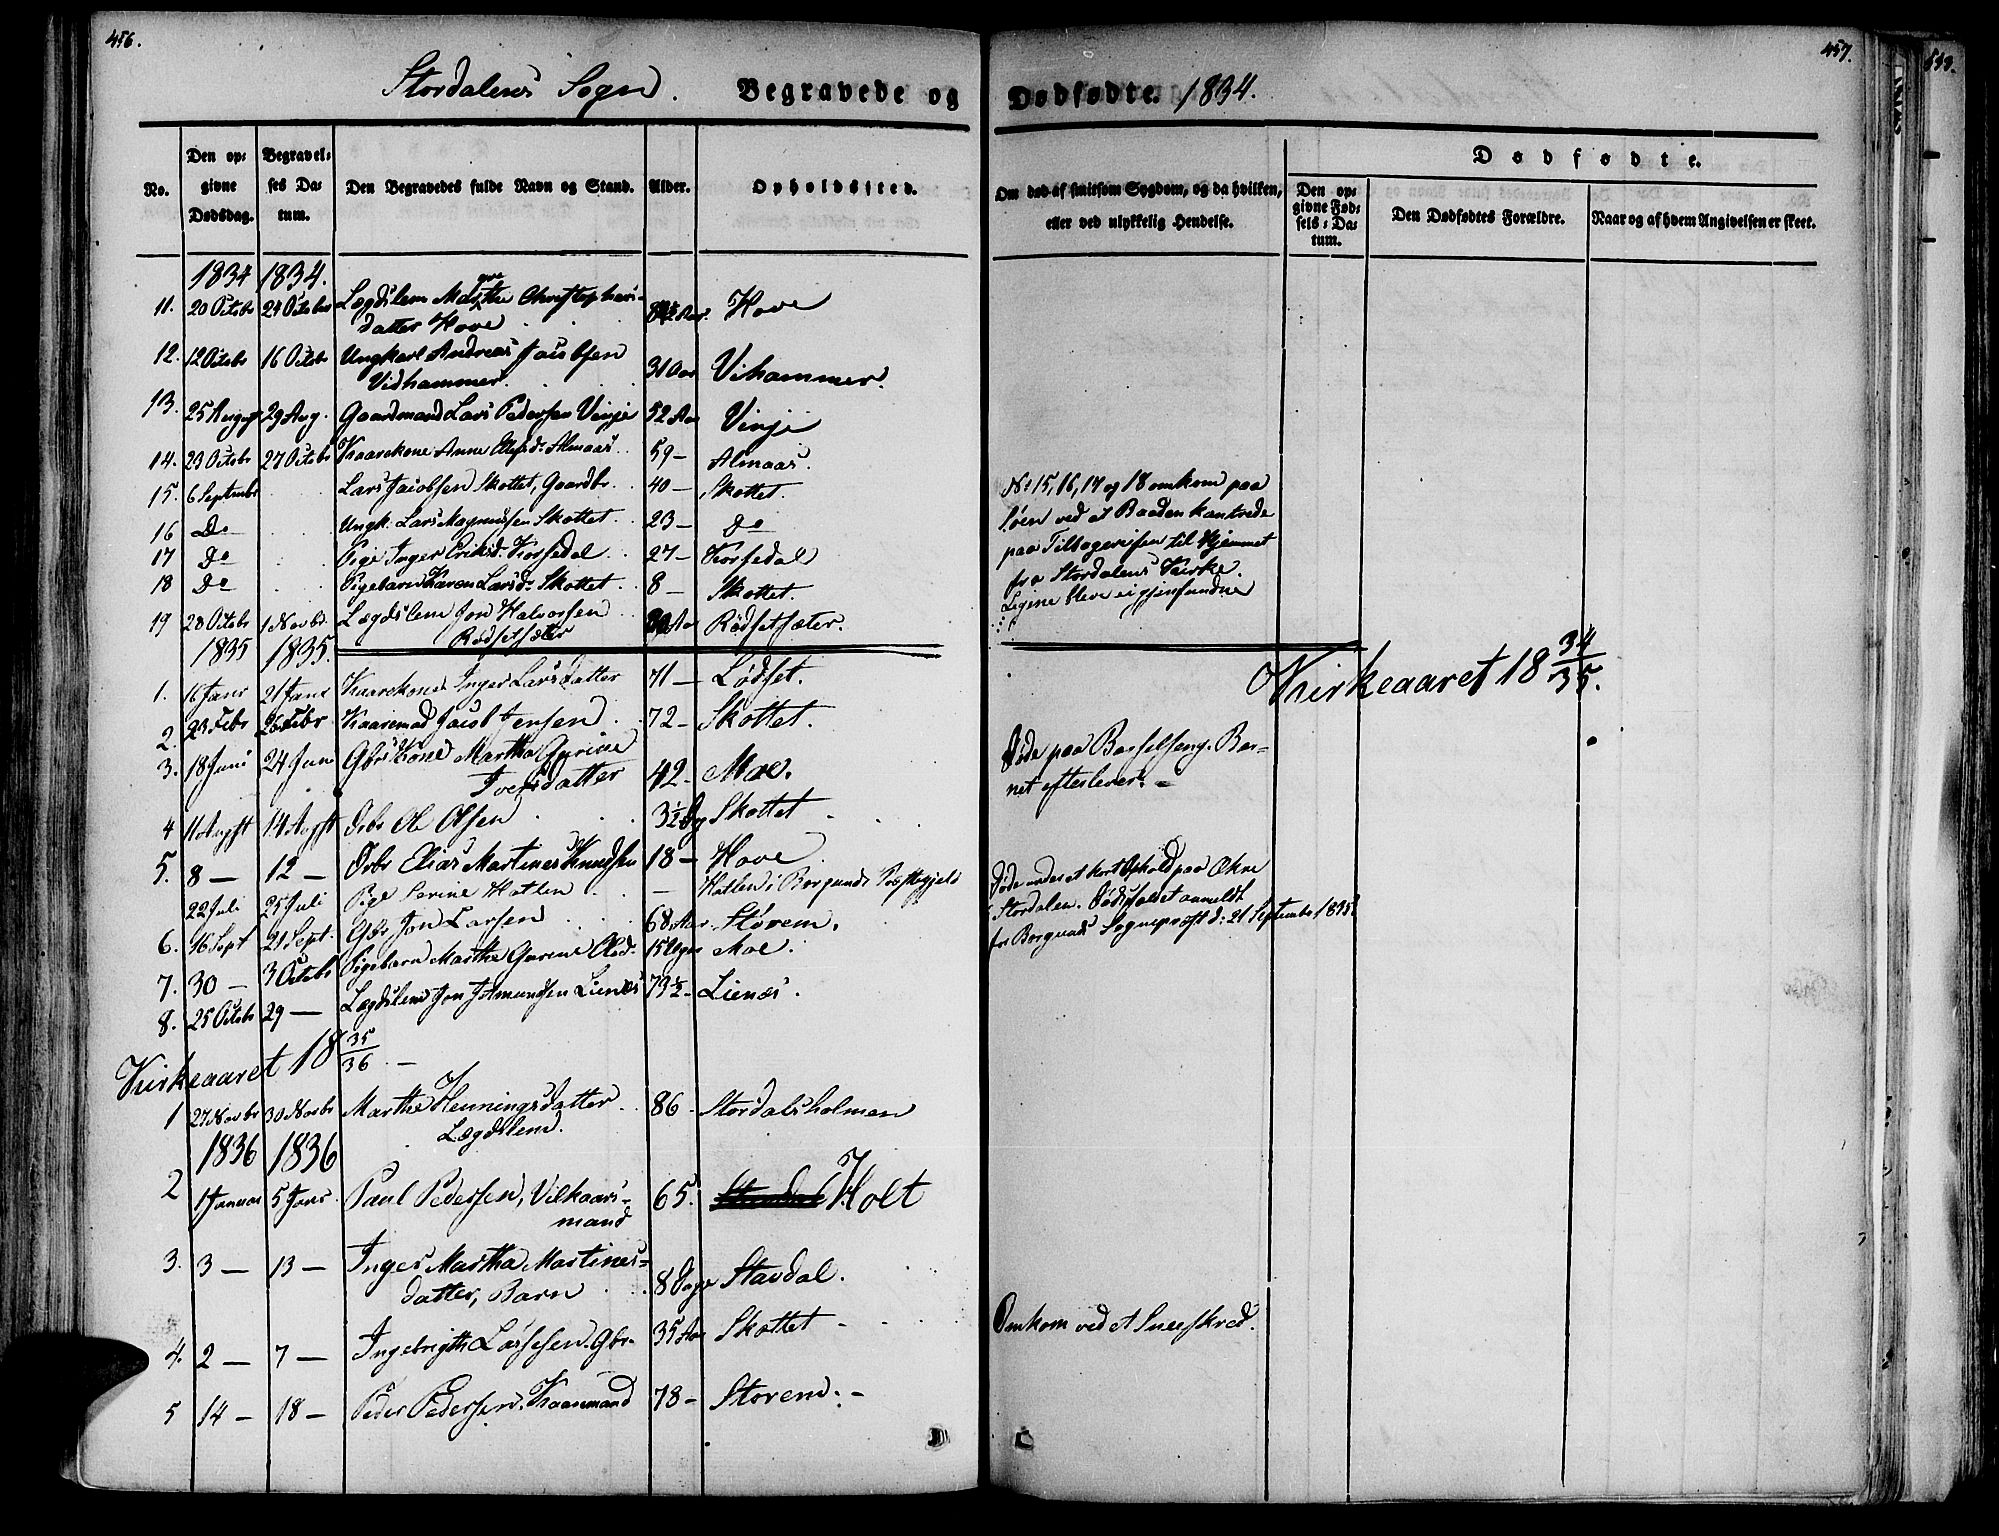 456.
Stordalens Sogn. Begravede og
No. Den opgivne Dødsdag. Begravelses Datum. Den Begravedes fulde Navn og Stand. Alder. Opholdssted.
1834 1834.
11. 20 Octobr 24 Octobr Lægdslem Marthe Christophers-
datter Hove Aar. Hove
12. 12 Octobr 16 Octobr Ungkarl Andreas Jacobsen
Vidhammer. 31 Aar Vihammer.
13. 25 August 29 Aug. Gaardmand Lars Pedersen Vinje 52 Aar Vinje
14. 23 Octobr 27 Octobr Kaarekone Anne Almaas. 59 — Almaas.
15. 6 Septembr Lars Jacobsen Skottet, Gaardbr. 40 — Skottet.
16 Do Ungk. Lars Magnussen Skottet. 23 — Do
17 Do Pige Inger Eriksd. Korsedal 27 — Korsedal
18 Do Pigebarn Karen Larsd. Skottet. 8 — Skottet.
19 28 Octobr 1 Novbr. Lægdslem Jon Halvorsen
Rødsetsæter Aar Rødsetsæter.
1835 1835.
1. 16 Janr 21 Janr Kaarekone Inger Larsdatter 71 — Lødset.
2. 23 Febr 26 Febr Kaaremand Jacob Jensen 72 — Skottet.
3. 18 Juni 24 Jun Gbrs Kone Martha Gurine
Iversdatter 42 — Moe.
4 11 Augst 14 Augst Drbr Ole Olsen 3½ Dg Skottet
5. 8 — 12 — Drbr Elias Martines Knudsen 18 — Hove
22 Juli 25 Juli Pige Serine Hatlen — Hatlen i Borgunds Præstegjeld
6. 16 Sept 21 Sept. Gbr Jon Larsen 68 Aar. Storem.
7. 30 — 3 Octobr Pigebarn Marthe Gurine Olsd. 15 Uger Moe.
8. 25 Octobr 29 — Lægdslem Jon Amundsen Lienæs 73½ — Lienæs.
Kirkeaaret 18 35/36 —
1 27 Novbr 30 Novbr Marthe Henningsdatter 86 — Stordalsholmen
Lægdslem.
1836 1836
2 1 Januar 5 Janr. Paul Pedersen, Vilkaars-
mand 65. Holt
3. 3 — 13 — Inger Martha Martines-
datter, Barn 8 Dage Stavdal.
4. 2 — 7 — Ingebrigth Larsesen. Gbr. 35 Aar Skottet
5 14 — 18 — Peder Pedersen. Kaaremand 78 — Storem. —
457.
Dødfødte. 1834.
Om død af smitsom Sygdom, og da hvilken, eller ved ulykkelig Hendelse.
Dødfødte.
Den opgivne Fødsels-Datum. Den Dødfødtes Forældre. Naar og af hvem Angivelsen er skeet.
No 15, 16, 17 og 18 omkom paa
Søen ved at Baaden kantrede
paa Tilbagereisen til Hjemmet
fra Stordalens Kirke.
Ligene bleve ei gjenfundne
Kirkeaaret 18 34/35.
Døde paa Barselseng. Bar-
net efterlever. —
Døde under et kort Ophold paa Økne
i Stordalen. Dødsfaldet anmeldt
fr Borgunds Sognepræst d: 21 Septembr 1835.
Omkom ved et Sneeskred.